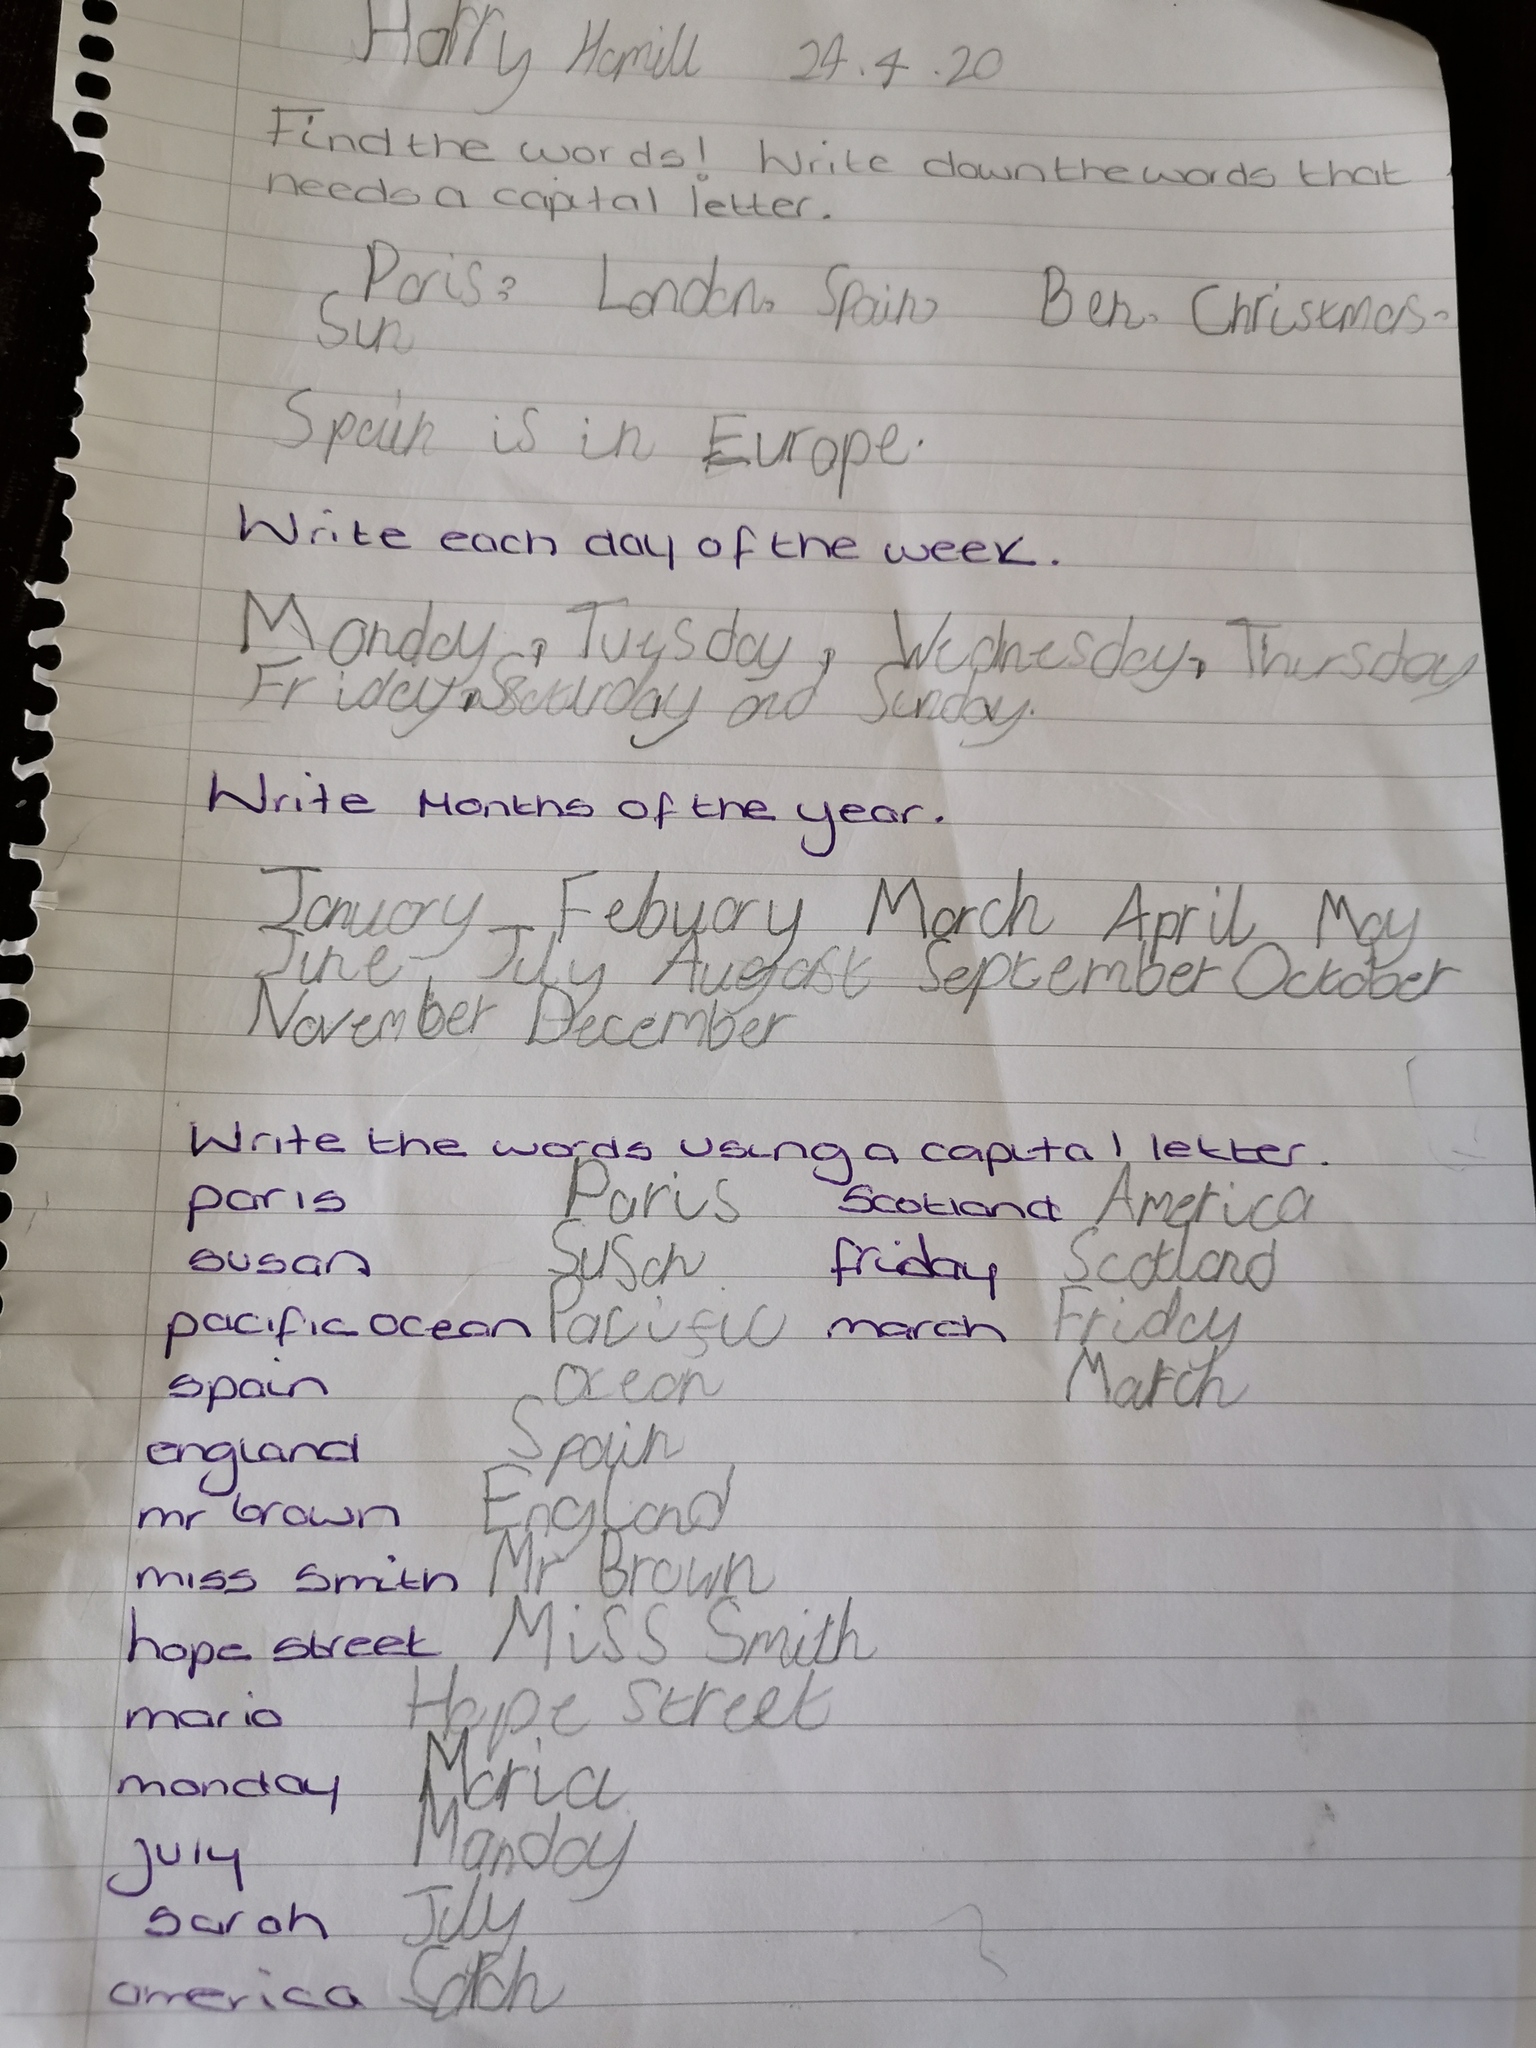 Harry Hamill 24.4.20
Find the words! Write down the words that
needs a capital letter.
Paris, London, Spain, Ben, Christmas.
Sun
Spain is in Europe.
Write each day of the week.
Monday, Tuysday, Wednesday, Thursday
Friday, Saturday and Sunday.
Write Months of the year.
January Febuary March April May
June July August September October
November December
Write the words using a capital letter.
paris Paris scotland America
susan Susan friday Scotland
pacific ocean Pacific march Friday
spain Ocean March
england Spain
mr brown England
miss smith Mr Brown
hope street Miss Smith
maria Hope Street
monday Maria
july Monday
sarah July
america Sarah